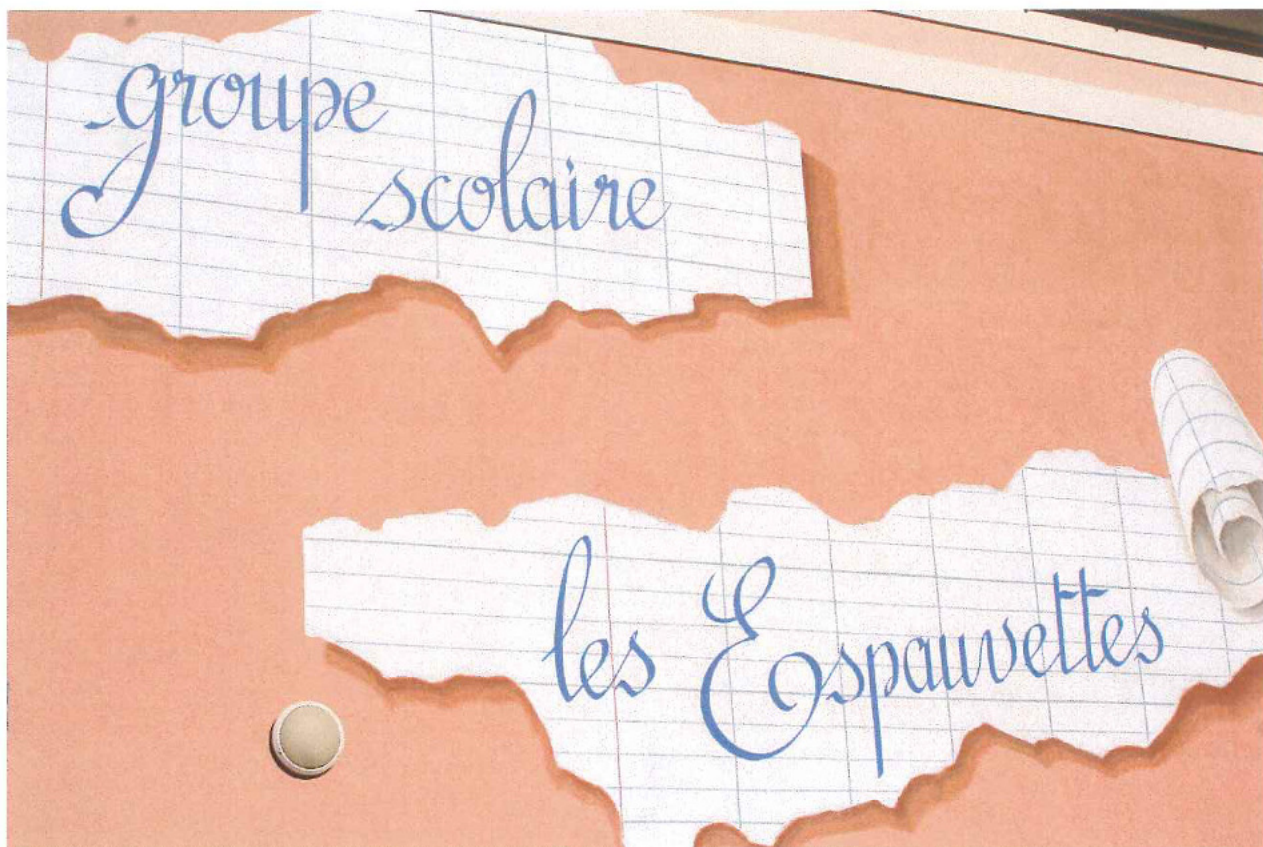 groupe
scolaire
les Espauvettes